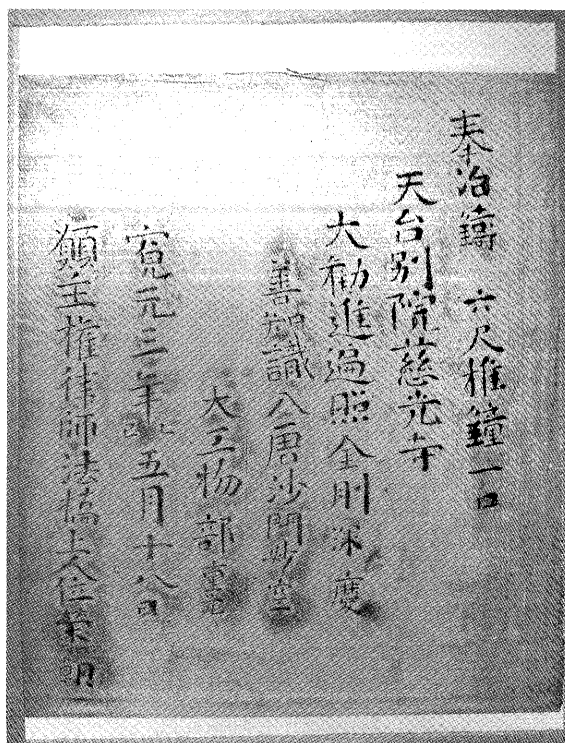 奉治鑄 六尺椎鐘一口
天台別院慈光寺
大勸進遍照金剛深慶
善知識入唐沙門妙空
大工物部重光
寬元三年乙巳五月十八日
願主權律師法橋上人位榮朝